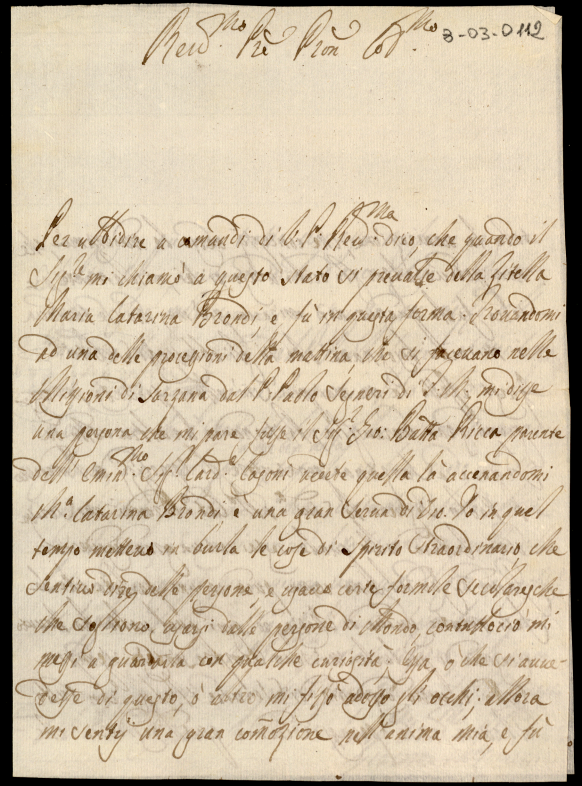 Reu.mo Pre Pron Col.mo 3-03-0112
Per ubbidire a comandi di V. P. Reu.ma dico, che quando il
Sig.re mi chiamò à questo stato si preualse della Zitella
Maria Catarina Brondi, e fù in questa forma. Trouandomi
ad una delle processioni della mattina, che si faceuano nelle
Missioni di Sarzana dal P. Paolo Segneri di mi disse
una persona che mi pare fusse il Sig.r Gio: Batta Ricca parente
dell' Emin.mo Sig.r Card.e Casoni uedete quella là accenandomi
M.a Catarina Brondi è una gran Serua di Dio. Io in quel
tempo metteuo in burla le cose di Spirito straordinario, che
sentiuo dire delle persone, e usauo certe formole secolaresche
che sogliono usarsi dalle persone di Mondo, contuttociò mi
messi a guardarla con qualche curiosità, Essa, ò che si auue-
desse di questo, ò altro mi fissò adosso gli occhi; allora
mi sentij una gran com̃ozione nell'anima mia, e fù